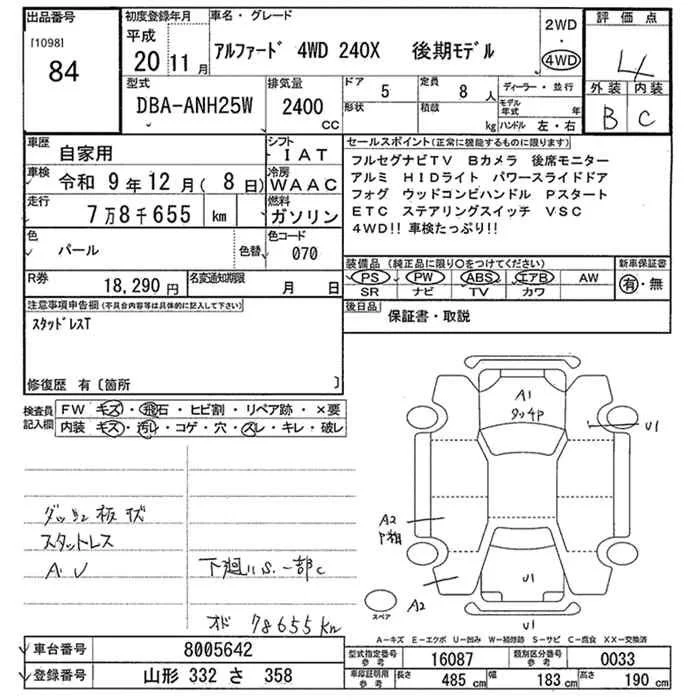 出品番号
[1098]
84
初度登録年月
平成
20 11 月
車名・グレード
アルファード 4WD 240X 後期モデル
2WD
・
4WD
評価点
4
外装 内装
B C
型式
DBA-ANH25W
排気量
2400
CC
ドア
5
形状
定員
8 人
積載
kg
ディーラー・並行
モデル年式 年
ハンドル 左・右
車歴
自家用
シフト
IAT
車検
令和 9年 12月( 8日)
冷房
WAAC
走行
7万8千655 km
燃料
ガソリン
色
パール
色替
色コード
070
R券
18,290 円
名変通知期限
月 日
セールスポイント(正常に機能するものに限ります)
フルセグナビTV Bカメラ 後席モニター
アルミ HIDライト パワースライドドア
フォグ ウッドコンビハンドル Pスタート
ETC ステアリングスイッチ VSC
4WD!! 車検たっぷり!!
装備品(純正品に限り〇をつけてください)
新車保証書
PS PW ABS エアB AW
SR ナビ TV カワ
有・無
後日品
保証書・取説
注意事項申告欄(不具合内容等は具体的に記入して下さい)
スタッドレスT
修復歴 有〔箇所 〕
検査員
記入欄
FW キズ・飛石・ヒビ割・リペア跡・×要
内装 キズ・汚レ・コゲ・穴・スレ・キレ・破レ
スタットレス
A U
下廻リS.一部C
オド 78655 Km
A1
U1
A2
A2
U1
U1
スペア
A-キズ E-エクボ U-凹み W-補修跡 S-サビ C-腐食 XX-交換済
車台番号
8005642
登録番号
山形 332 さ 358
型式指定番号
参考
16087
類別区分番号
参考
0033
車庫証明用
参考
長さ 485 cm
幅 183 cm
高さ 190 cm